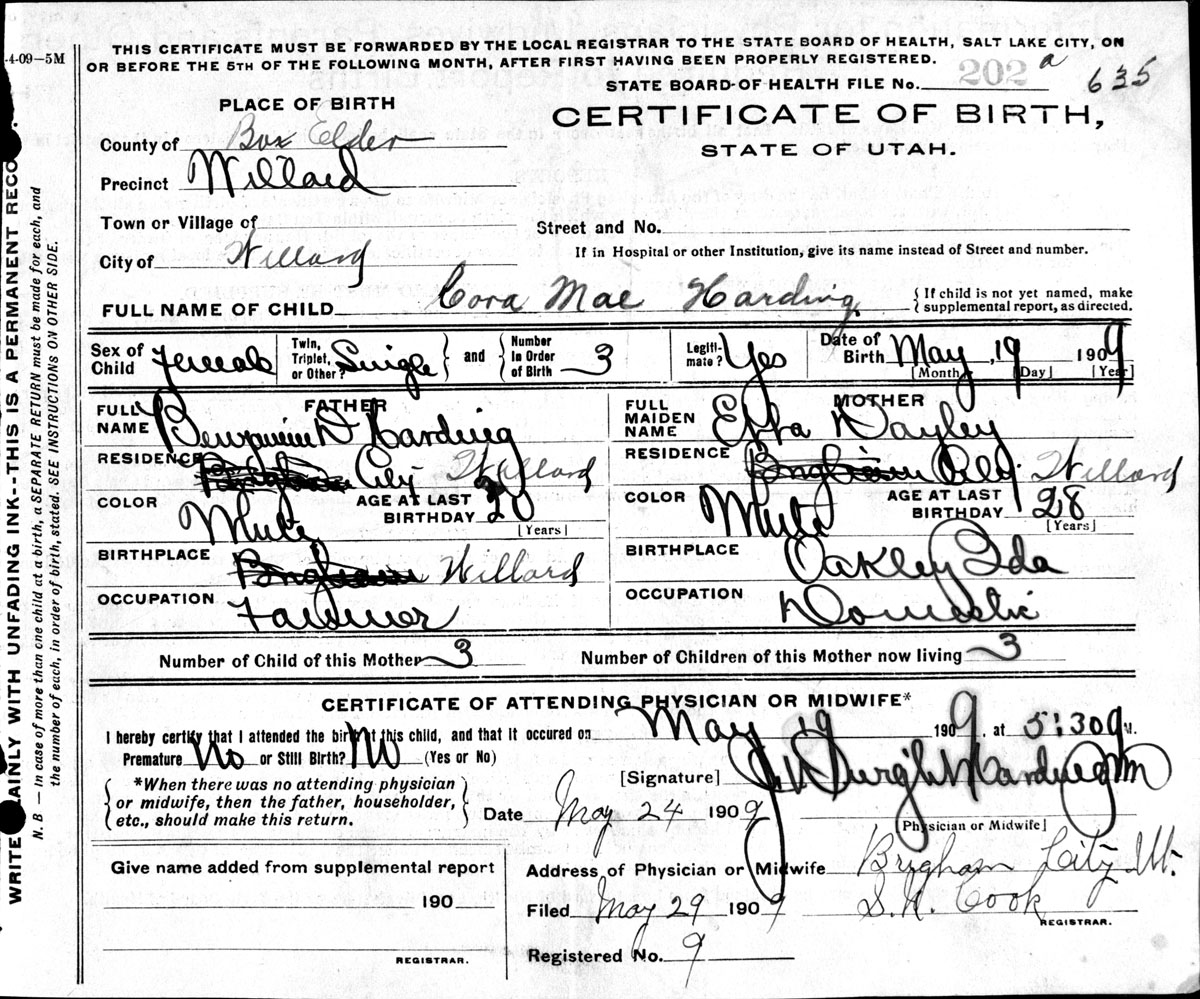 THIS CERTIFICATE MUST BE FORWARDED BY THE LOCAL REGISTRAR TO THE STATE BOARD OF HEALTH, SALT LAKE CITY, ON
-4-09-5M
OR BEFORE THE 5TH OF THE FOLLOWING MONTH, AFTER FIRST HAVING BEEN PROPERLY REGISTERED.
STATE BOARD OF HEALTH FILE No. 202 a 635
PLACE OF BIRTH
CERTIFICATE OF BIRTH,
STATE OF UTAH.
County of Box Elder
Precinct Willard
Town or Village of
Street and No.
City of Willard
If in Hospital or other Institution, give its name instead of Street and number.
FULL NAME OF CHILD Cora Mae Harding
{ If child is not yet named, make
supplemental report, as directed.
Sex of Child Female
Twin, Triplet, or Other? Single } and { Number In Order of Birth 3
Legiti-mate? Yes
Date of Birth May, 19 1909
[Month] [Day] [Year]
FATHER
FULL NAME Benjamin D Harding
RESIDENCE Brigham City Willard
COLOR White
AGE AT LAST BIRTHDAY
[Years]
BIRTHPLACE Brigham Willard
OCCUPATION Farmer
MOTHER
FULL MAIDEN NAME Effa Dayley
RESIDENCE Brigham City. Willard
COLOR White
AGE AT LAST BIRTHDAY 28
[Years]
BIRTHPLACE Oakley Ida
OCCUPATION Domestic
Number of Child of this Mother 3
Number of Children of this Mother now living 3
CERTIFICATE OF ATTENDING PHYSICIAN OR MIDWIFE*
I hereby certify that I attended the birth of this child, and that it occured on May 19 1909, at 5:30 a M.
Premature No or Still Birth? No (Yes or No)
*When there was no attending physician
or midwife, then the father, householder,
etc., should make this return.
[Signature] Harding
Date May 24 1909
[Physician or Midwife]
Give name added from supplemental report
190
REGISTRAR.
Address of Physician or Midwife Brigham City Ut.
Filed May 29 1909 S. N. Cook
REGISTRAR.
Registered No. 9
WRITE PLAINLY WITH UNFADING INK--THIS IS A PERMANENT RECO
N. B — In case of more than one child at a birth, a SEPARATE RETURN must be made for each, and
the number of each, in order of birth, stated. SEE INSTRUCTIONS ON OTHER SIDE.